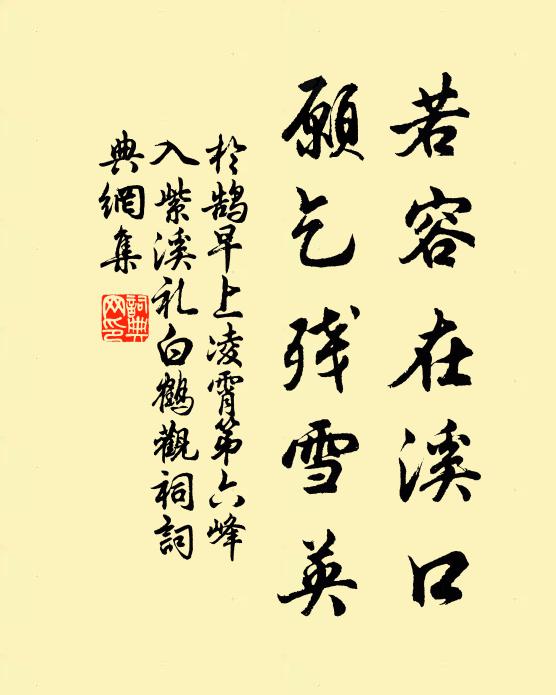 若容在溪口
願乞残雪英
於鹄早上凌霄第六峰
入紫溪礼白鶴觀祠詞
典網集
詞典
网印